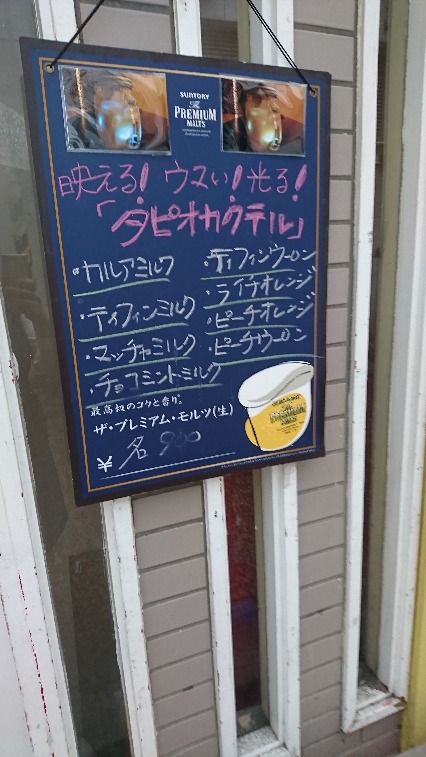 SUNTORY
The
PREMIUM
MALTS
映える!ウマい!光る!
「タピオカクテル」
・カルアミルク
・ティフィンミルク
・マッチャミルク
・チョコミントミルク
・ティフィンウーロン
・ライチオレンジ
・ピーチオレンジ
・ピーチウーロン
最高級のコクと香り。
ザ・プレミアム・モルツ〈生〉
¥ 各 900